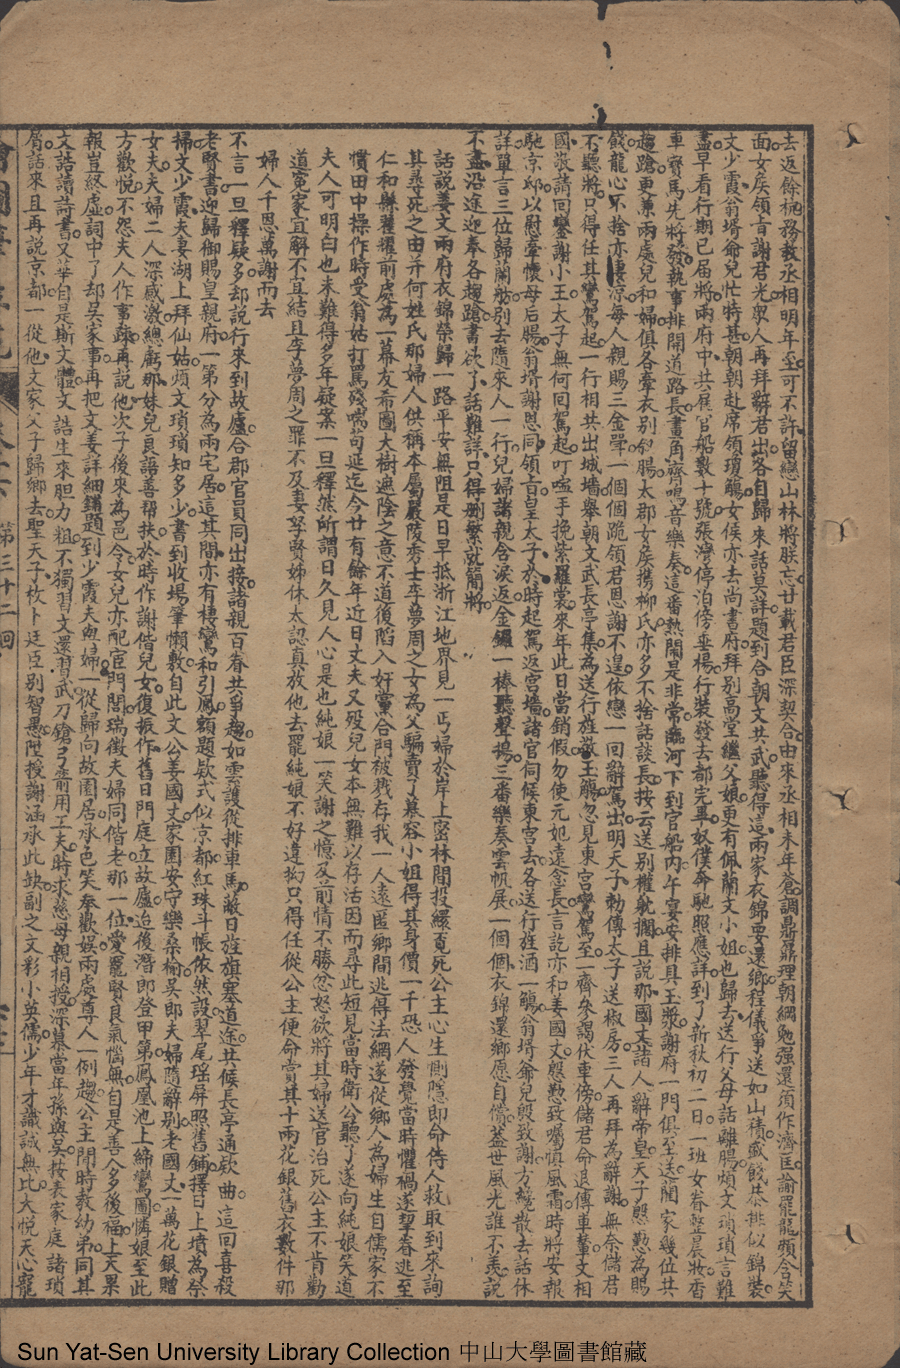 去返餘桃務教丞相明年至可不許留戀山林將朕忘廿載君臣深契合由來丞相未年蒼調鼎鼐理朝綱勉强還須作濟匡論罷龍顏含笑
面女矦領旨謝君光眾人再拜辭君出各自歸來話莫詳題到合朝文共武聽得這兩家衣錦要還鄉程儀爭送如山積盛餞
文少霞翁壻爺兒忙特甚朝朝赴席領瓊觴女侯亦去尚書府拜別高堂繼父娘更有佩蘭文小姐也歸去送行父母話離腸煩文瑣瑣言難
盡早看行期已届將兩府中共展官船數十號張灣停泊傍垂楊行裝發去都完畢奴僕奔馳照應詳到了新秋初二日一班女眷整晨妝香
車寶馬先將發執事排開道路長畫角齊鳴音樂奏這番熱鬧是非常臨河下到官船內午宴安排具玉漿謝府一門俱至送闔家幾位共
趨蹌更兼兩處兒和婦俱各牽衣別斷腸太郡女矦携柳氏亦多多不捨話談長按云送別權躭擱且說那國丈諸人辭帝皇天子慇懃為賜
餞龍心不捨亦悽涼每人親賜三金斝一個個跪領君恩謝不遑依戀一回辭駕出明天子勅傳太子送椒房三人再拜為辭謝無奈儲君
不聽將只得任其鸞駕起一行相共出城墻舉朝文武長亭集為送行旌敬玉觴忽見東宮鸞駕至一齊參謁伏車傍儲君命退傳車輦文相
國欲請回鑾謝小王太子無何回駕起叮嚀手挽紫羅裳來年此日當銷假勿使元妃遠念長言訖亦和姜國丈慇懃致囑慎風霜時將安報
馳京邸以慰牽懷母后腸翁壻謝恩同領旨皇太子於時起駕返宮墻諸官伺候東宮去各送行旌酒一觴翁壻爺兒慇致謝方纔散去話休
詳單言三位歸蘭舫別去隋來人一行兒婦諸親含淚返金鑼一棒聽聲揚三番樂奏雲帆展一個個衣錦還鄉愿自償蓋世風光誰不羨說
不盡沿途迎奉各趨蹌書欲了話難詳只得刪繁就簡將
話說姜文兩府衣錦榮歸一路平安無阻是日早抵浙江地界見一丐婦於岸上密林間投繯覓死公主心生惻隱即命侍人救取到來詢
其尋死之由并何姓氏那婦人供稱本屬嚴陵秀士李夢周之女為父騙賣了慕容小姐得其身價一千恐人發覺當時懼禍遂挈眷逃至
仁和縣翟權前處為一幕友希圖大樹遮陰之意不道後陷入奸黨合門被戮存我一人遠匿鄉間逃得法網遂從鄉人為婦生自儒家不
慣田中操作時受翁姑打罵殘喘苟延迄今廿有餘年近日丈夫又歿兒女本無難以存活因而尋此短見當時衛公聽了遂向純娘笑道
夫人可明白也未難得多年疑案一旦釋然所謂日久見人心是也純娘一笑謝之憶及前情不勝忿怒欲將其婦送官治死公主不肯勸
道冤家宜解不宜結且李夢周之罪不及妻孥賢姊休太認真放他去罷純娘不好違拗只得任從公主便命賞其十兩花銀舊衣數件那
婦人千恩萬謝而去
不言一旦釋疑多却說行來到故廬合郡官員同出接諸親百眷共爭趨如雲護從排車馬蔽日旌旗塞道途共候長亭通欵曲這回喜殺
老賢書迎歸御賜皇親府一第分為兩宅居這其間亦有棲鸞和引鳳額題欵式似京都紅珠斗帳依然設翠尾瑶屏照舊鋪擇日上墳為祭
掃文少霞夫妻湖上拜仙姑煩文瑣瑣知多少書到收場筆懶敷自此文公姜國丈家園安守樂桑榆吳郎夫婦隨辭別老國丈一萬花銀贈
女夫夫婦二人深感激總虧那妹兒良語善帮扶於時作謝偕兒女復振作舊日門庭立故廬迨後潛郎登甲第鳳凰池上締鸞圖憐娘至此
方歡悅不怨夫人作事疎再說他次子後來為邑令女兒亦配宦門閭瑞徵夫婦同偕老那一位愛寵賢良氣惱無自是善人多後福上天果
報豈終虛詞中了却吳家事再把文姜詳細鋪題到少霞夫與婦一從歸向故園居承色笑奉歡娛兩處尊人一例趨公主閒時教幼弟同其
文誥讀詩書又華自是斯文體文誥生來胆力粗不獨習文還習武刀鎗弓箭用工夫時求慈母親相授深慕當年孫與吳按表家庭諸瑣
屑話來且再說京都一從他文家父子歸鄉去聖天子枚卜廷臣別智愚陞授謝涵承此缺副之文彩小英儒少年才識誠無比大悅天心寵
第三十二回
Sun Yat-Sen University Library Collection 中山大學圖書館藏